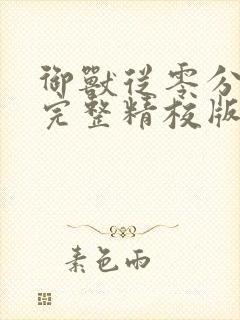 御獸從零分
完整精校版
素色雨